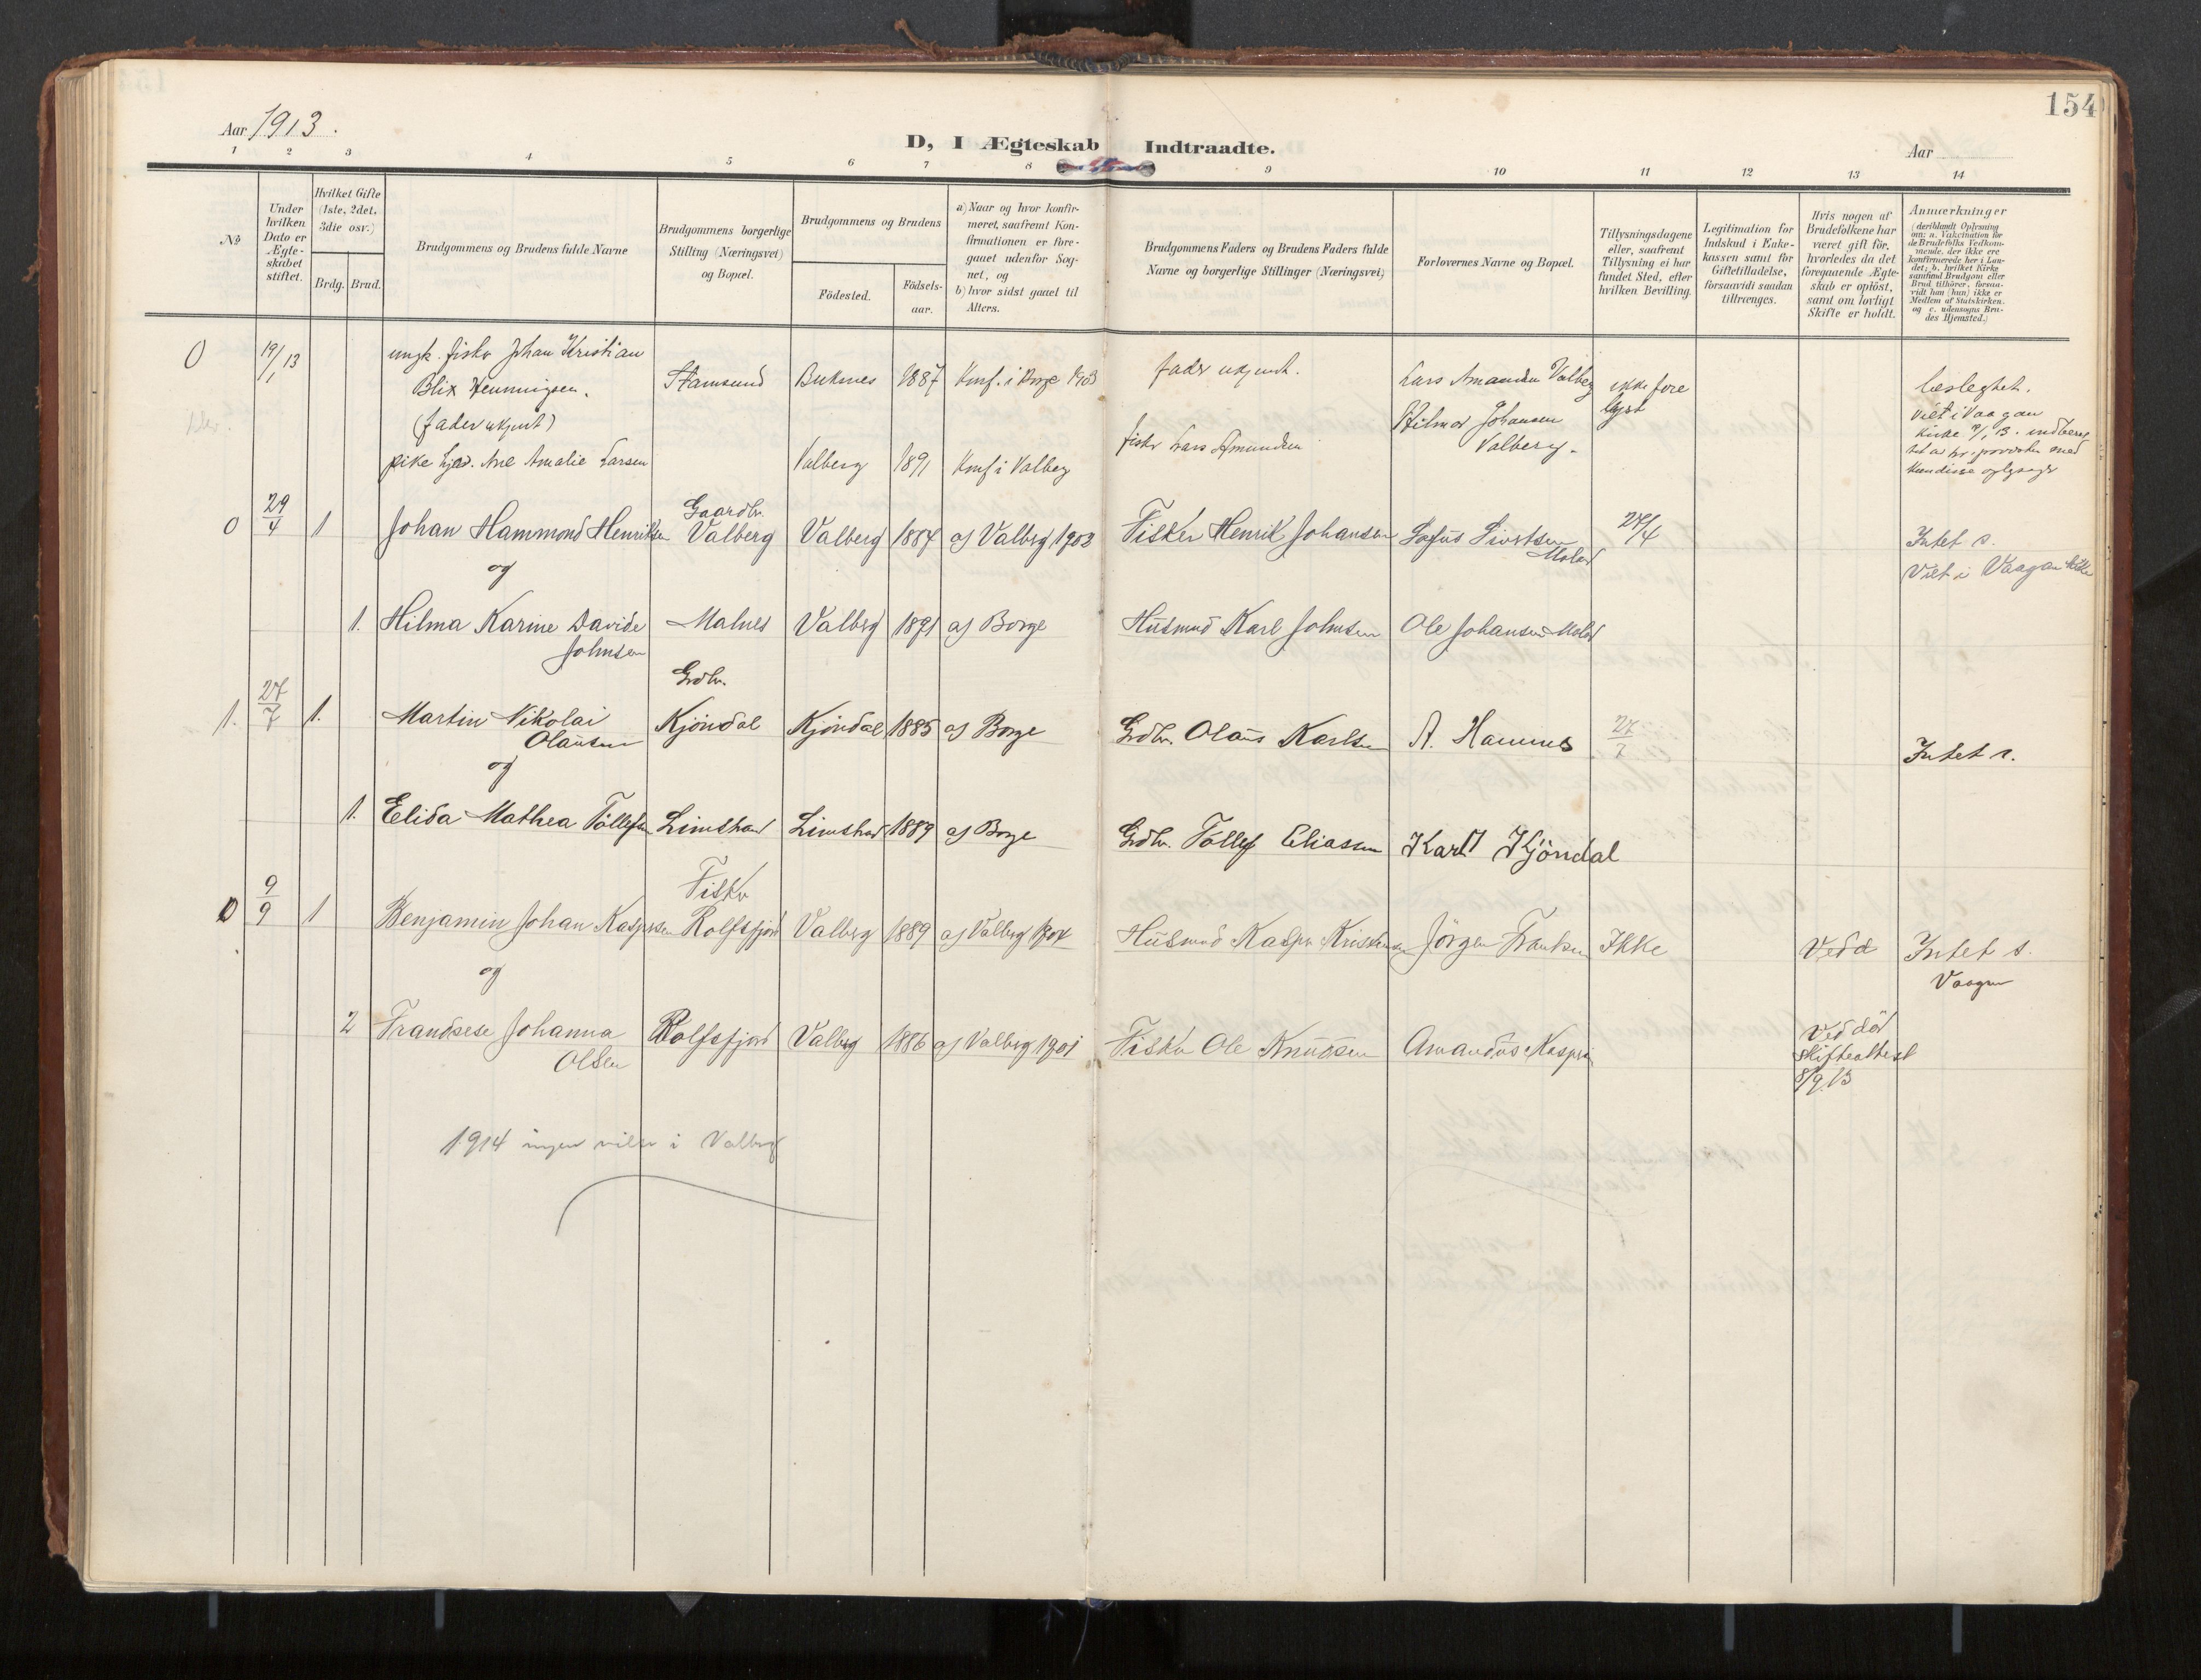 154
Aar 1913.
D, I Ægteskab Indtraadte.
Aar
1 2 3 4 5 6 7 8 9 10 11 12 13 14
No
Under hvilken Dato er Ægteskabet stiftet.
Hvilket Gifte (1ste, 2det, 3die osv.)
Brdg. Brud.
Brudgommens og Brudens fulde Navne
Brudgommens borgerlige Stilling (Næringsvei) og Bopæl.
Brudgommens og Brudens
Födested.
Födsels-aar.
a) Naar og hvor konfir-
meret, saafremt Kon-
firmationen er fore-
gaaet udenfor Sog-
net, og
b) hvor sidst gaaet til
Alters.
Brudgommens Faders og Brudens Faders fulde
Navne og borgerlige Stillinger (Næringsvei)
Forlovernes Navne og Bopæl.
Tillysningsdagene
eller, saafremt
Tillysning ei har
fundet Sted, efter
hvilken Bevilling.
Legitimation for
Indskud i Enke-
kassen samt for
Giftetilladelse,
forsaavidt saadan
tiltrænges.
Hvis nogen af
Brudefolkene har
været gift för,
hvorledes da det
foregaaende Ægte-
skab er oplöst,
samt om lovligt
Skifte er holdt.
Anmærkninger
(deriblandt Oplysning
om: a. Vakcination for
de Brudefolks Vedkom-
mende, der ikke ere
konfirmerede her i Lan-
det; b. hvilket Kirke
samfund Brudgom eller
Brud tilhörer, forsaa-
vidt han (hun) ikke er
Medlem af Statskirken.
og c. udensogns Bru-
des Hjemsted.)
0 19/1 13 ungk. fisker Johan Kristian
Blix Henningsen. Stamsund Buknes 1887 Konf. i Borge 1903 fader ukjendt. Lars Amundsen Valberg ikke fore
lyst
(fader ukjent) Hilmar Johansen
Valberg.
viet i Vaagan
Kirke
pike Ane Amalie Larsen Valberg 1891 Konf i Valberg fisker Lars Amundsen
0 29/4 1 Johan Hammond Henriksen Gaardbr. Valberg Valberg 1884 af Valberg 1903 Fisker Henrik Johansen 27/4 Intet s.
Viet i Vaagan Kirke
og
1. Hilma Karine Davide
Johnsen Malnes Valberg 1891 af Borge Husmand Karl Johnsen Ole Johansen
1. 27/7 1. Martin Nikolai
Olausen Grdbr. Kjöndal Kjöndal 1885 af Borge Grdbr. Olaus Karlsen A. Hamnes 27/7 Intet s.
og
1. Elida Mathea Tollefsen Limstrand Limstrand 1889 af Borge Grdbr. Tollef Eliassen Karl Kjöndal
0 9/9 1 Benjamin Johan Kaspersen Fisker Rolfsfjord Valberg 1889 af Valberg 1904 Husmand Kasper Kristiansen Jörgen Frantsen Ikke Intet s.
Vaagan
og
2 Frandsese Johanna
Olsen Rolfsfjord Valberg 1886 af Valberg 1901 Fisker Ole Knudsen Amandus Kaspersen Ved död
Skifteattest
8/9 13
1914 ingen vielser i Valberg